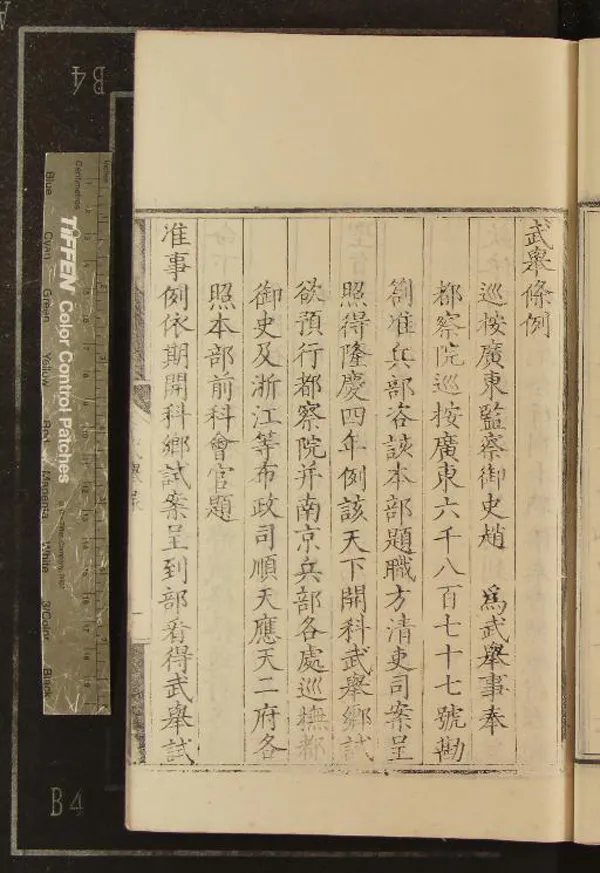 武舉條例
巡按廣東監察御史趙 為武舉事奉
都察院巡按廣東六千八百七十七號勘
劄准兵部咨該本部題職方清吏司案呈
照得隆慶四年例該天下開科武舉鄉試
欲預行都察院并南京兵部各處巡撫都
御史及浙江等布政司順天應天二府各
照本部前科會官題
准事例依期開科鄉試案呈到部看得武舉試
一
TIFFEN Color Control Patches
Centimetres
Inches
Blue
Cyan
Green
Yellow
Red
Magenta
White
3/Color
Black
B4
B4